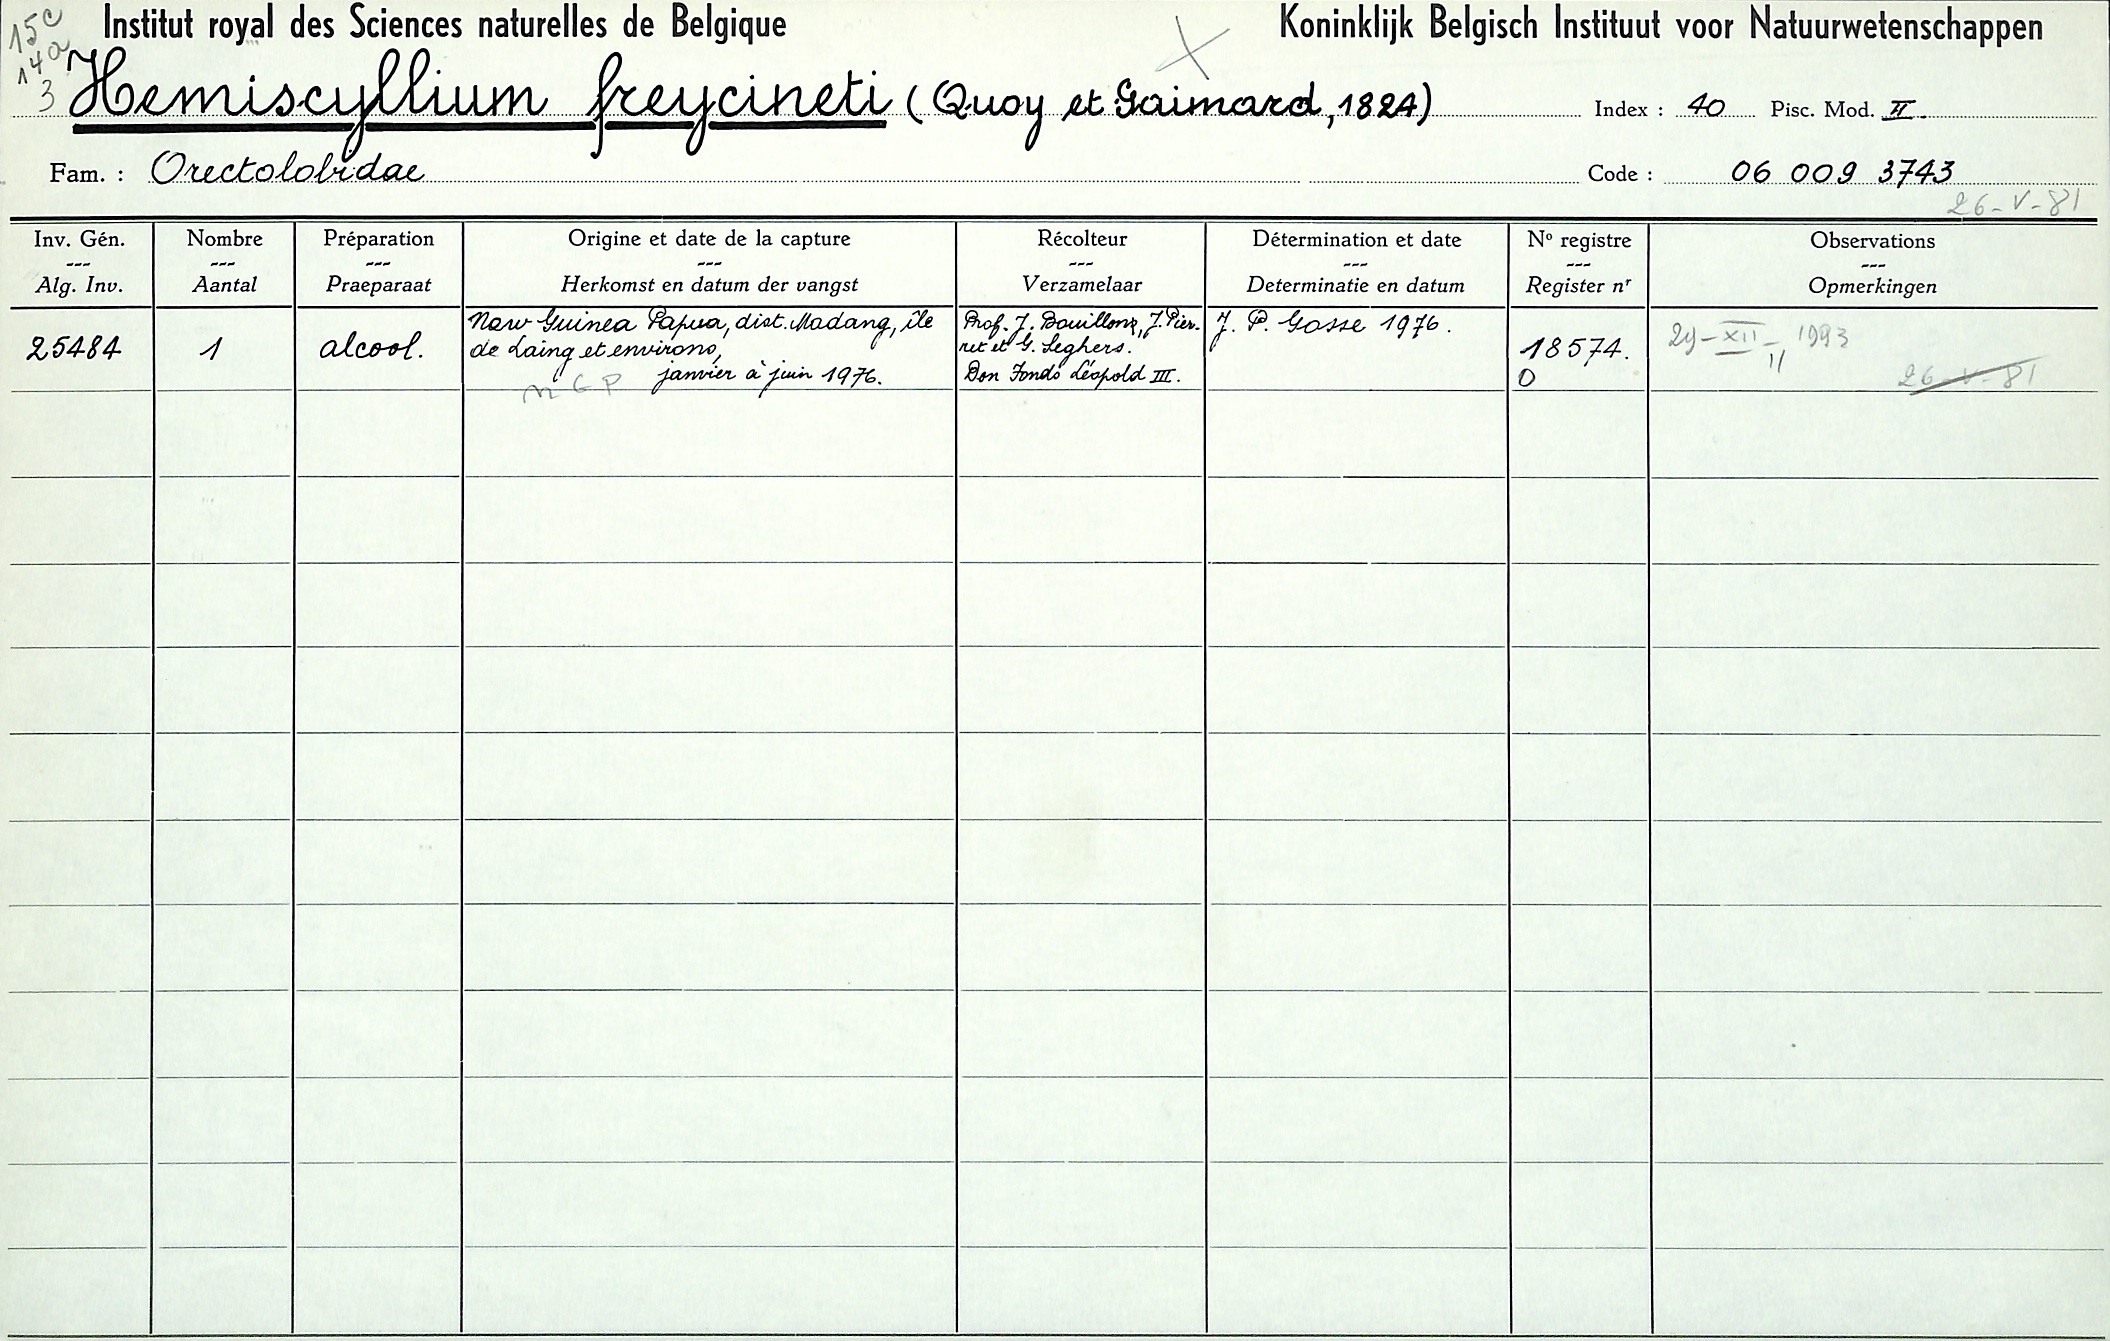 15c
14a
3
Institut royal des Sciences naturelles de Belgique
Koninklijk Belgisch Instituut voor Natuurwetenschappen
Hemiscyllium freycineti (Quoy et Gaimard, 1824)
Index : 40 Pisc. Mod. II.
Fam. : Orectolobidae
Code : 06 009 3743
26-V-81
Inv. Gén.
---
Alg. Inv.
Nombre
---
Aantal
Préparation
---
Praeparaat
Origine et date de la capture
---
Herkomst en datum der vangst
Récolteur
---
Verzamelaar
Détermination et date
---
Determinatie en datum
Nº registre
---
Register nr
Observations
---
Opmerkingen
25484
1
alcool.
New Guinea Papua, dist. Madang, île
de Laing et environs,
janvier à juin 1976.
N G P
Prof. J. Bouillons, J. Pier-
ret et G. Seghers.
Don Fonds Léopold III.
J. P. Gosse 1976.
18574.
0
XII - 1993
26-V-81